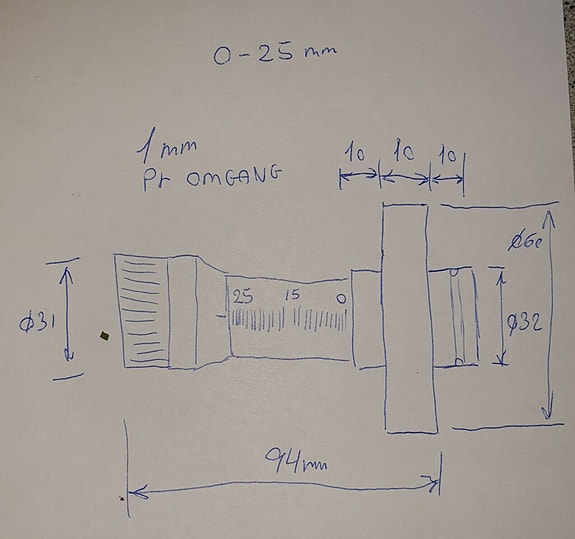 0-25 mm
1 mm
Pr OMGANG
10 10 10
Ø31
25 15 0
Ø32
94mm